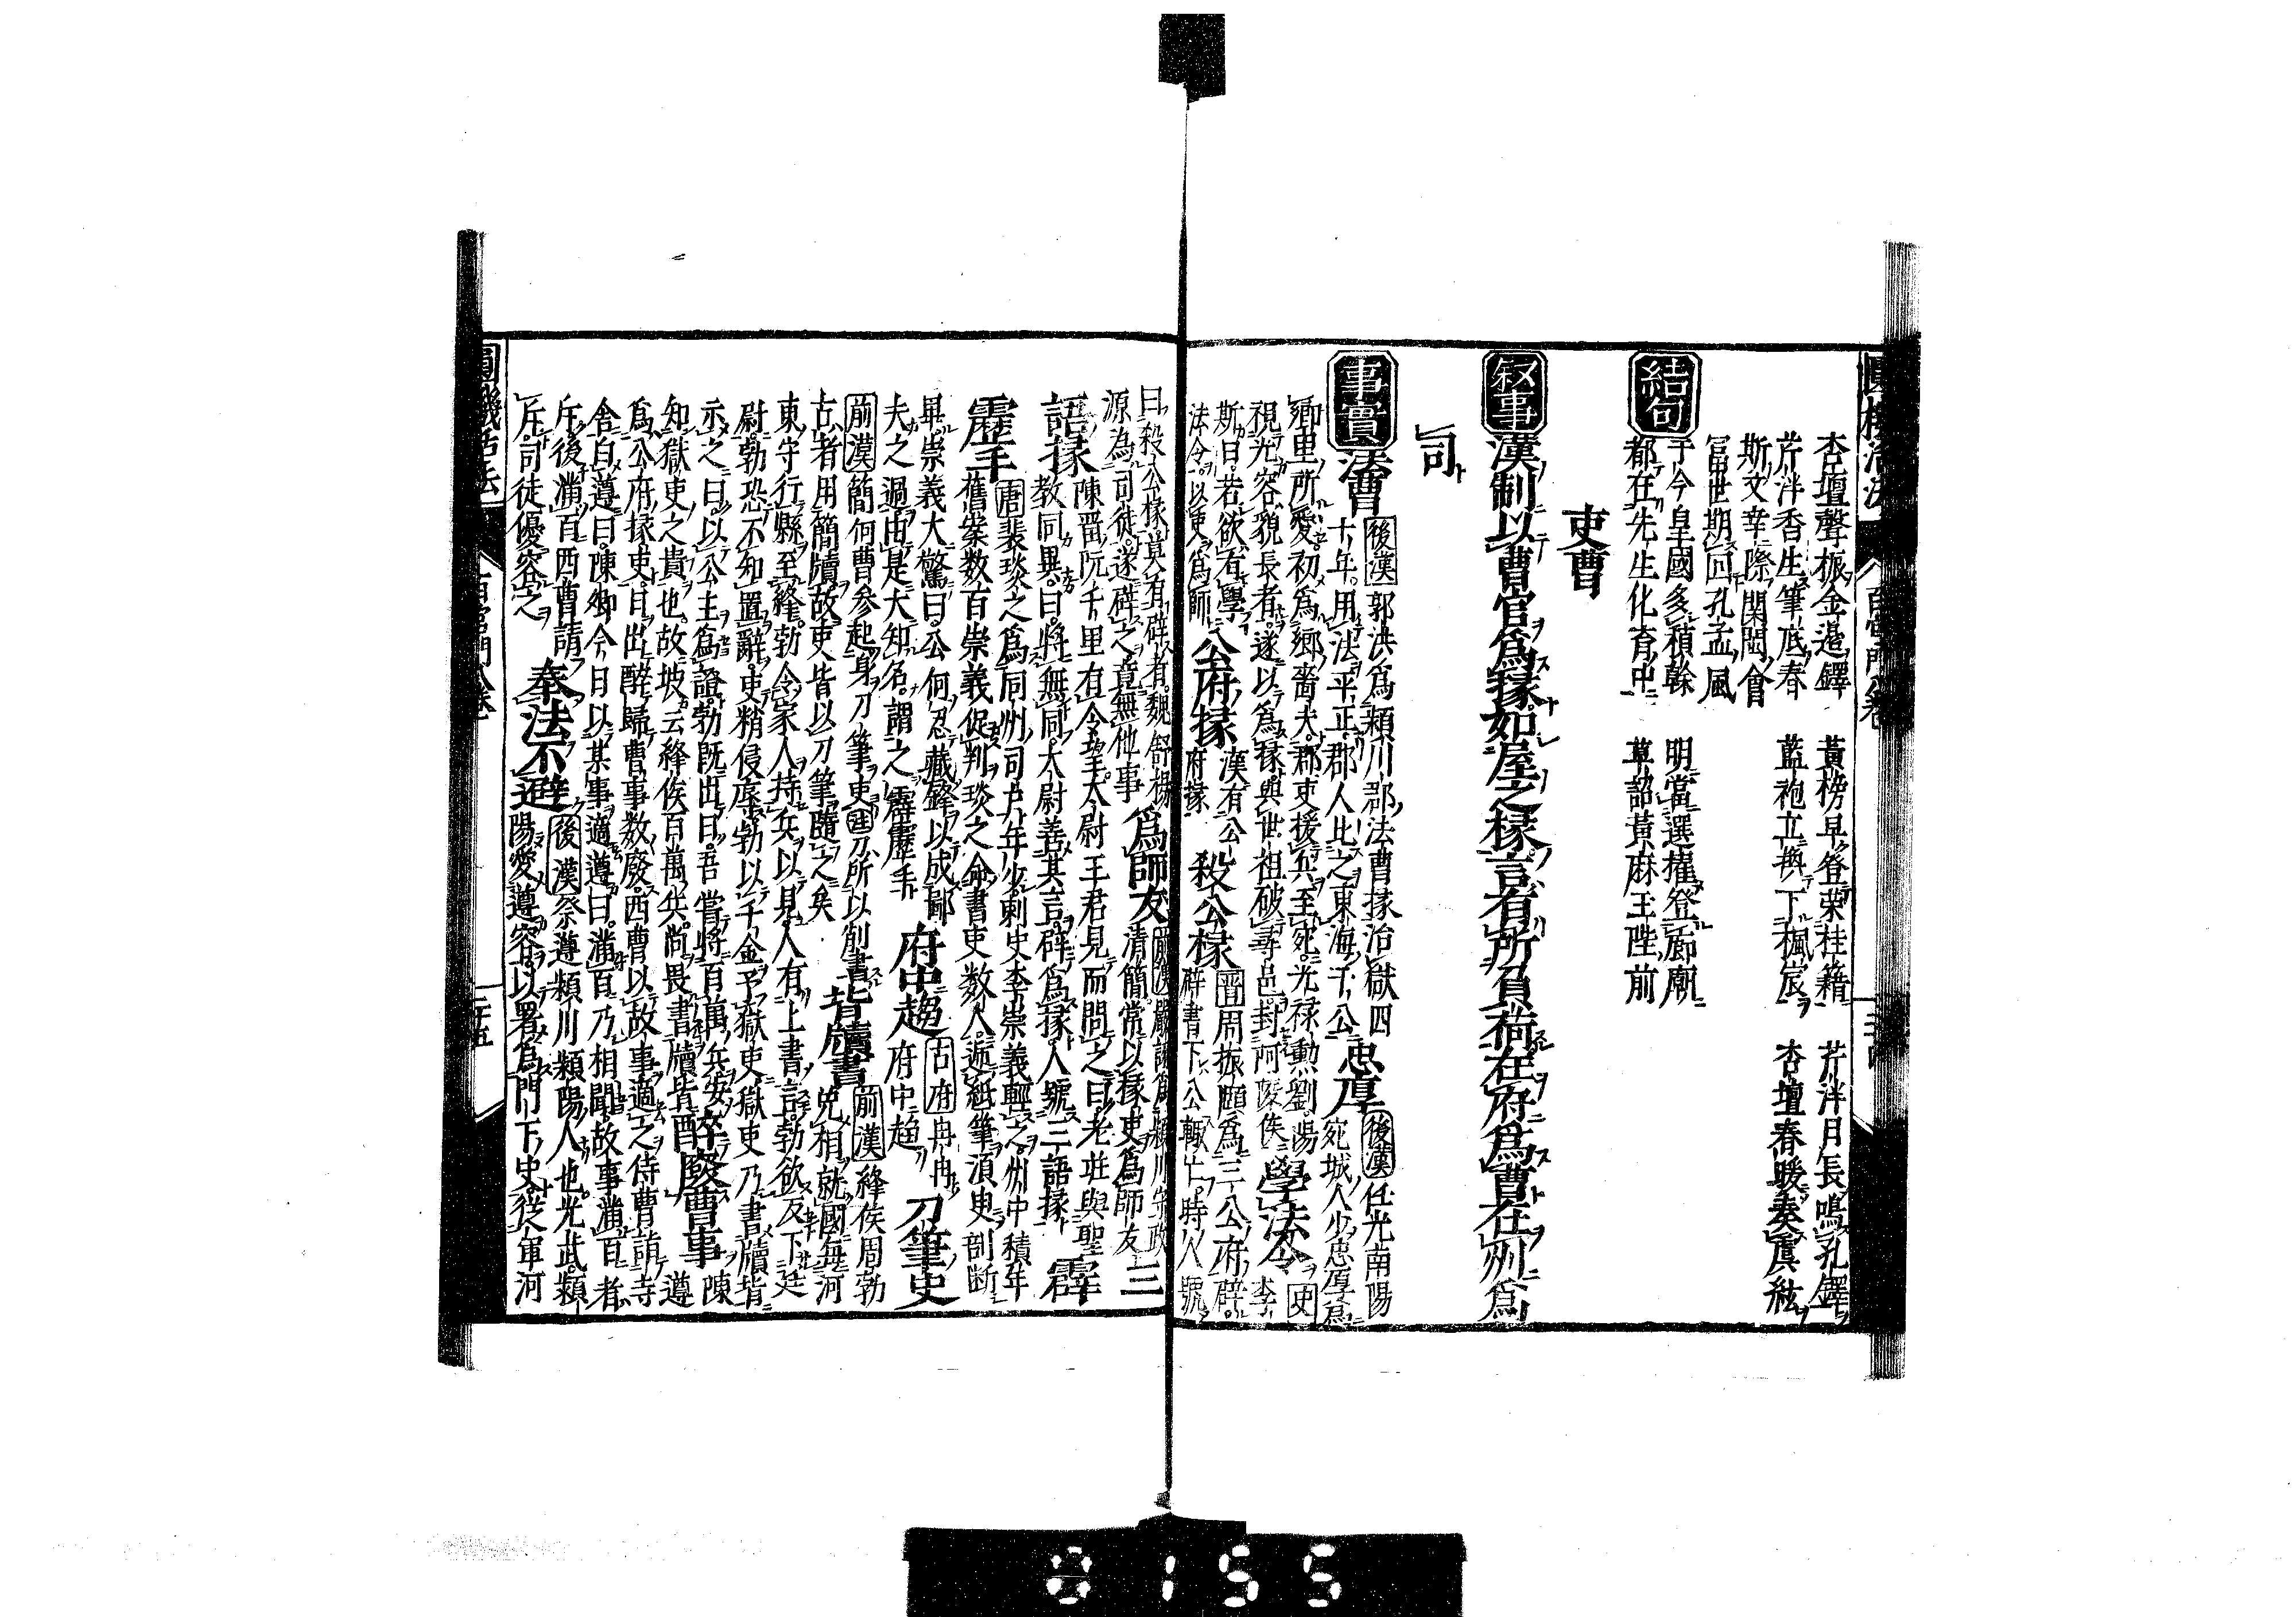 杏壇聲振金邉鐸　黃榜早登荣桂籍　芹泮月長鳴孔鐸
芹泮香生筆底春　藍袍立換下楓宸　杏壇春暖奏虞絃
斯文幸際閑閣會
冨世期回孔孟風
結句　于今皇國多稹榦　明當選擢登廊廟
都在先生化育中　草詔黃麻玉陛前
吏曹
叙事　漢制以曹官爲掾如屋之椽言有所負荷在府爲曹在州爲
司
事實　法曹　後漢郭洪爲頴川郡法曹掾治獄四
十年用法平正郡人比之東海于公　忠厚　後漢任光南陽
宛城人少忠厚爲
鄉里所愛初爲郷嗇夫郡吏援兵至宛光禄勲劉陽
視光容貌長者遂以爲掾與世祖破尋邑封阿陵侯　學法令　史李
斯曰若欲有學
法令以吏爲師　公府掾　漢有公
府掾　殺公掾　晋周振願爲三公府辟
辟書下公輙亡時人號
曰殺公掾莫有辟者魏舒楊
源為司徒遂辟之竟無他事　爲師友　前漢嚴詡爲頴川守政
清簡常以掾吏爲師友　三
語掾　陳晋阮千里有令望大尉王君見而問之曰老莊與聖
教同異曰將無同大尉善其言辟爲掾人號三語掾　霹
靂手　唐裴琰之爲同州司户年少刺史李崇義輕之州中積年
舊案数百崇義促判琰之命書吏数人逓紙筆湏臾剖断
畢崇義大驚曰公何忍藏鋒以成鄙
夫之過由是大知名謂之霹靂手　府中趨　古府冉冉
府中趨　刀筆史
前漢簡何曹参起身刀筆吏注刀所以削書
古者用簡牘故吏皆以刀筆隨之矣　背牘書　前漢絳侯周勃
免相就國每河
東守行縣至絳勃令家人持兵以見人有上書言勃欲反下廷
尉勃恐不知置辭吏稍侵辱勃以千金予獄吏獄吏乃書牘背
示之曰以公主爲證勃既出曰吾嘗將百萬兵安
知獄吏之貴也故坡云絳侯百萬兵尚畏書牘背　醉廢曹事　陳遵
爲公府掾吏日出醉歸曹事数廢西曹以故事適之侍曹請寺
舎白遵曰陳卿今日以某事適遵曰滿百乃相聞故事滿百者
斥後滿百西曹請
斥司徒優容之　奉法不避　後漢祭遵頴川頴陽人也光武頴
陽愛遵容以署爲門下史從今軍河
二十五